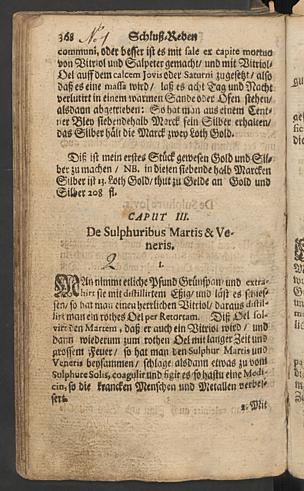 368 No 1 Schluß-Reden
communi, oder besser ist es mit sale ex capite mortuo
von Vitriol und Salpeter gemacht/ und mit Vitriol-
Oel auff dem calcem Jovis oder Saturni zugesetzt/ also
daß es eine massa wird/ laß es acht Tag und Nacht
verlutirt in einem warmen Sande oder Ofen stehen/
alsdann abgetrieben: So hat man aus einem Cent-
ner Bley siebendehalb Marck fein Silber erhalten/
das Silber hält die Marck zwey Loth Gold.
Diß ist mein erstes Stück gewesen Gold und Sil-
ber zu machen / NB. in diesen siebendehalb Marcken
Silber ist 13. Loth Gold/ thut zu Gelde an Gold und
Silber 208 fl.
CAPUT III.
De Sulphuribus Martis & Ve-
neris.
2 1.
MAn nimmt etliche Pfund Grünspan/ und extra-
hirt sie mit distillirtem Eßig/ und läßt es schies-
sen/ so hat man einen herrlichen Vitriol/ daraus distil-
lirt man ein rothes Oel per Retortam. Diß Oel sol-
virt den Martem, daß er auch ein Vitriol wird/ und
dann wiederum zum rothen Oel mit langer Zeit und
grossem Feuer/ so hat man den Sulphur Martis und
Veneris beysammen/ schlage alsdann etwas zu vom
Sulphure Solis, coagulir und figir es/ so hastu eine Medi-
cin, so die krancken Menschen und Metallen verbes-
sert.
2. Mit